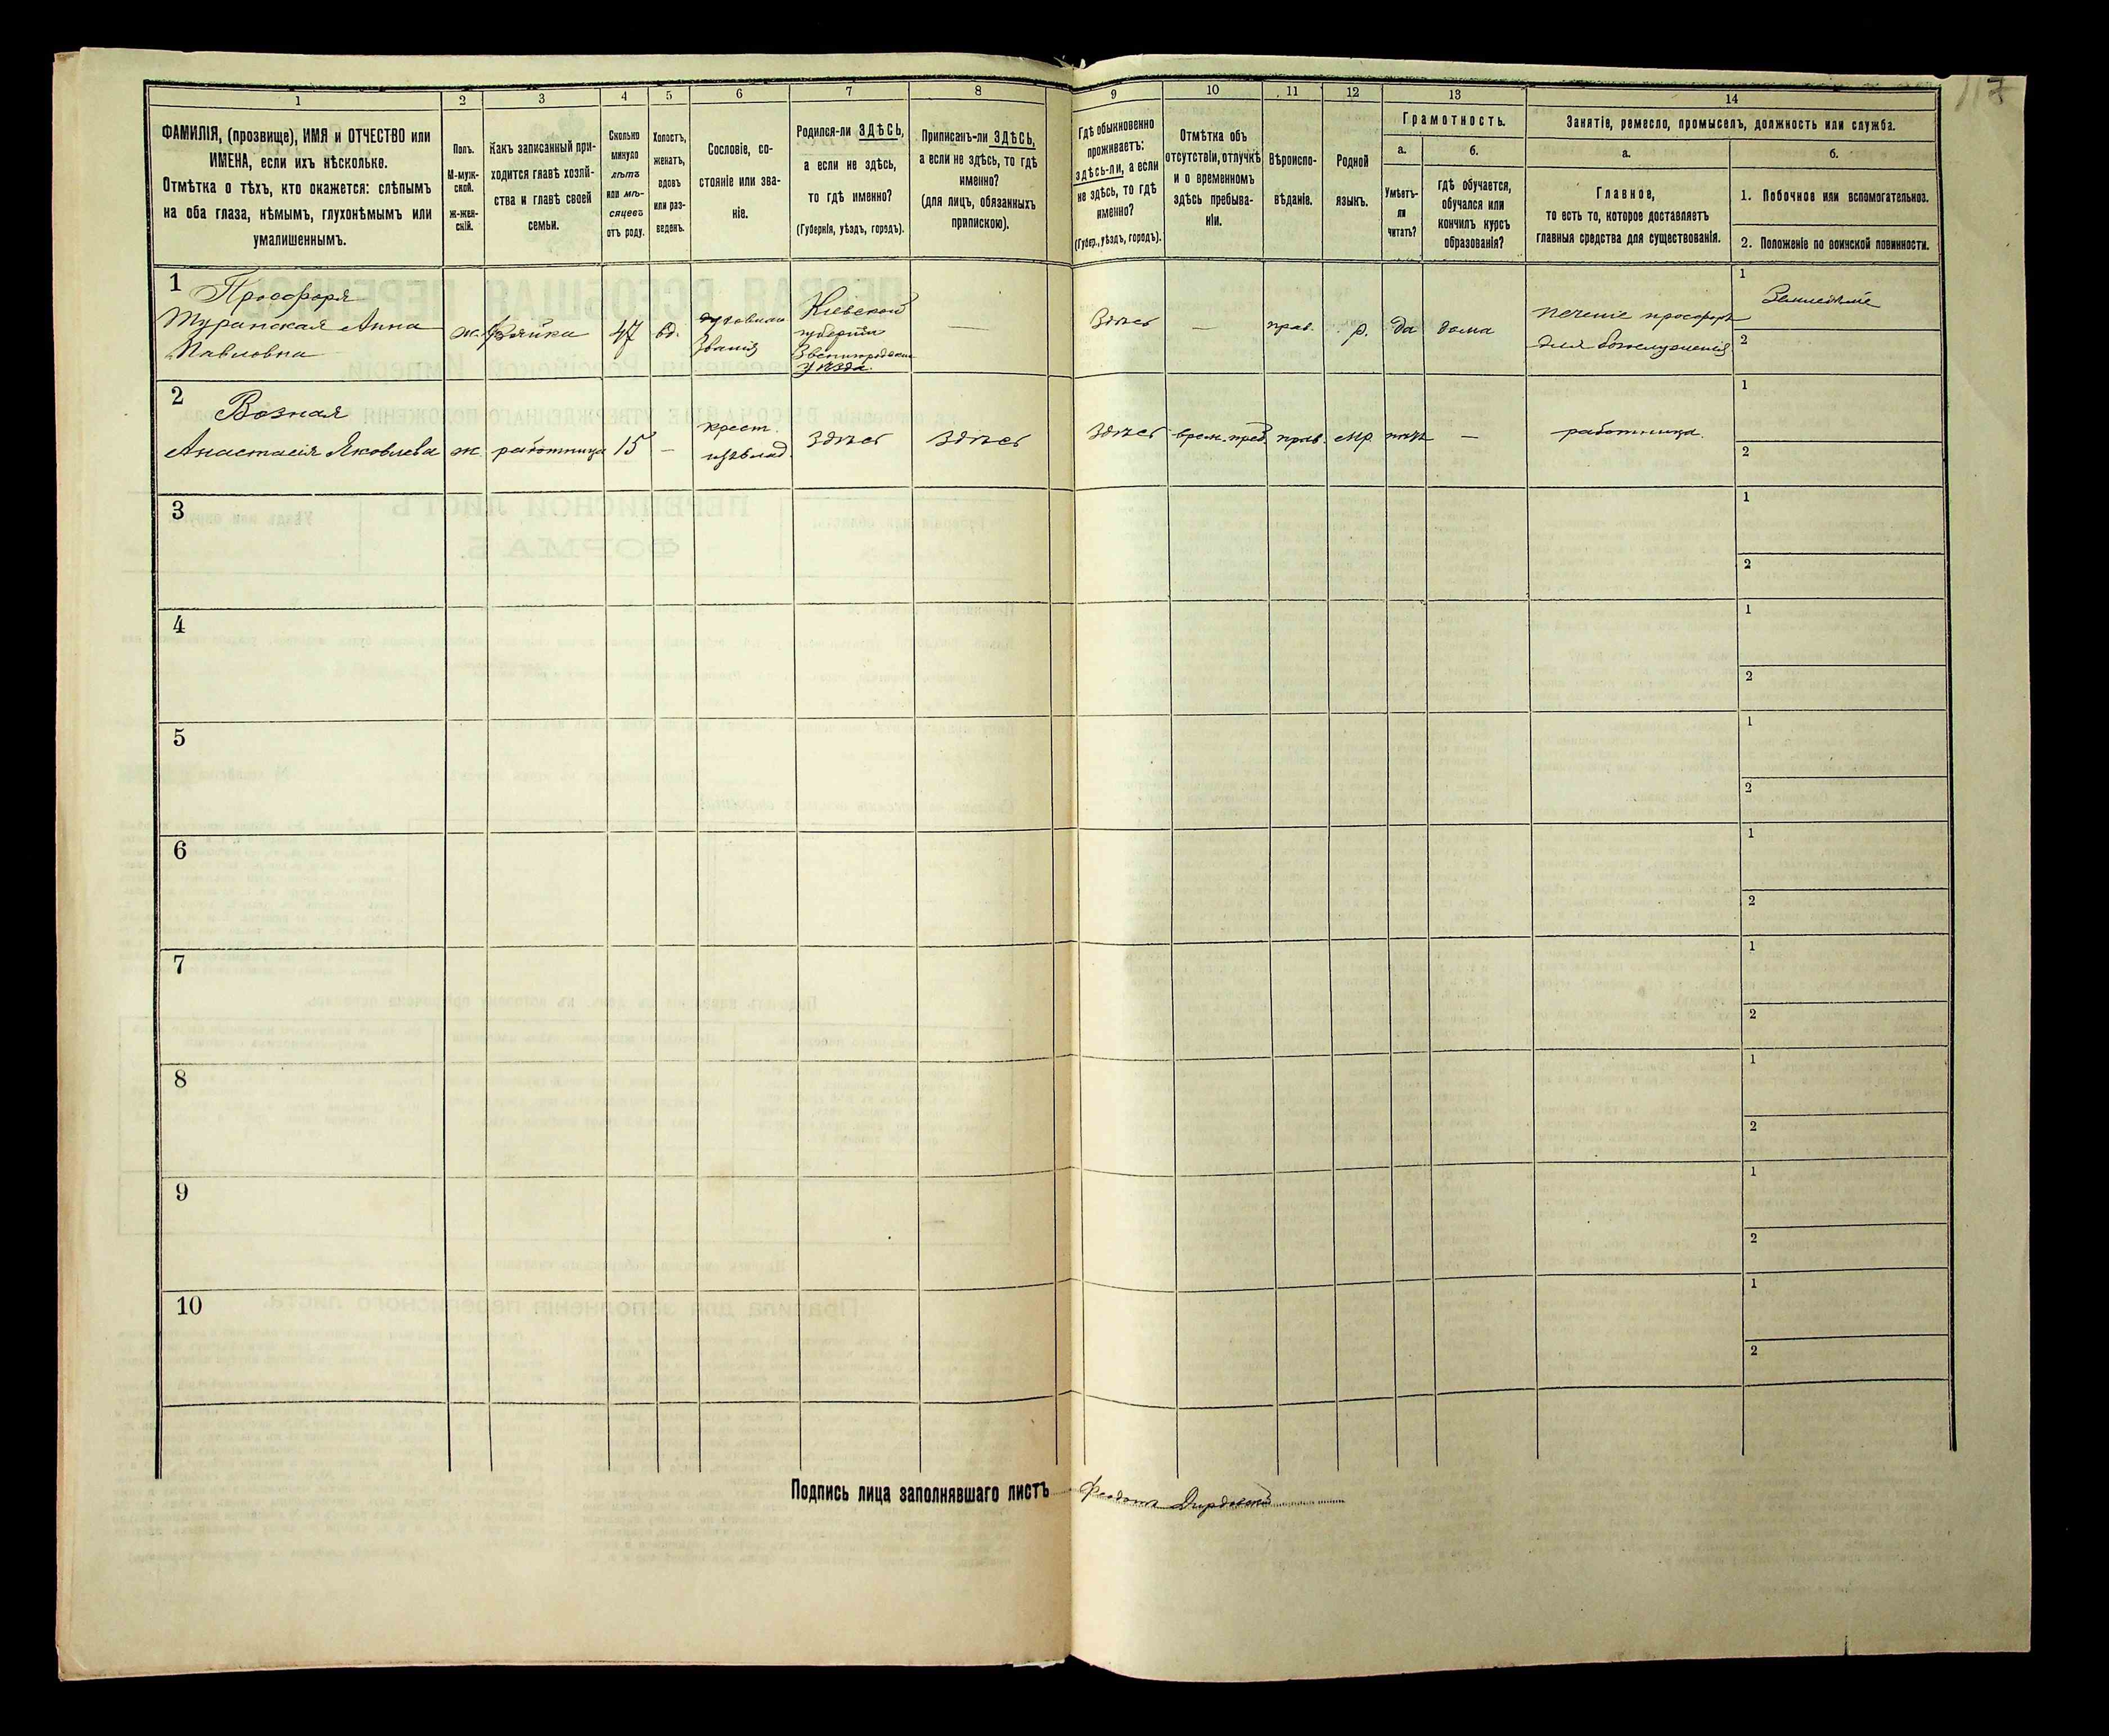 117
1 2 3 4 5 6 7 8 9 10 11 12 13 14
ФАМИЛІЯ, (прозвище), ИМЯ и ОТЧЕСТВО или
ИМЕНА, если ихъ нѣсколько.
Отмѣтка о тѣхъ, кто окажется: слѣпымъ
на оба глаза, нѣмымъ, глухонѣмымъ или
умалишеннымъ.
Полъ.
М-муж-
ской.
Ж-жен-
скій.
Какъ записанный при-
ходится главѣ хозяй-
ства и главѣ своей
семьи.
Сколько
минуло
лѣтъ
или мѣ-
сяцевъ
отъ роду.
Холостъ,
женатъ,
вдовъ
или раз-
веденъ.
Сословіе, со-
стояніе или зва-
ніе.
Родился-ли ЗДѢСЬ,
а если не здѣсь,
то гдѣ именно?
(Губернія, уѣздъ, городъ).
Приписанъ-ли ЗДѢСЬ,
а если не здѣсь, то гдѣ
именно?
(для лицъ, обязанныхъ
припискою).
Гдѣ обыкновенно
проживаетъ:
здѣсь-ли, а если
не здѣсь, то гдѣ
именно?
(Губер., уѣздъ, городъ).
Отмѣтка объ
отсутствіи, отлучкѣ
и о временномъ
здѣсь пребыва-
ніи.
Вѣроиспо-
вѣданіе.
Родной
языкъ.
Грамотность.
а.
Умѣетъ-
ли
читать?
б.
гдѣ обучается,
обучался или
кончилъ курсъ
образованія?
Занятіе, ремесло, промыселъ, должность или служба.
а.
Главное,
то есть то, которое доставляетъ
главныя средства для существованія.
б.
1. Побочное или вспомогательное.
2. Положеніе по воинской повинности.
1 Просфорня
Туранская Анна
Павловна
ж.
хозяйка
47
вд.
духовнаго
званія
Кіевской
губерніи
Звенигородскаго
уѣзда.
—
Здѣсь
—
прав.
р.
да
дома
печеніе просфоръ
для богослуженія
1 Земледѣліе
2
2 Возная
Анастасія Яковлева
ж.
работница
15
—
крест.
изъ влад.
здѣсь
здѣсь
здѣсь
врем. преб.
прав.
мр.
нѣтъ
—
работница.
1
2
3
1
2
4
1
2
5
1
2
6
1
2
7
1
2
8
1
2
9
1
2
10
1
2
Подпись лица заполнявшаго листъ Феодотъ